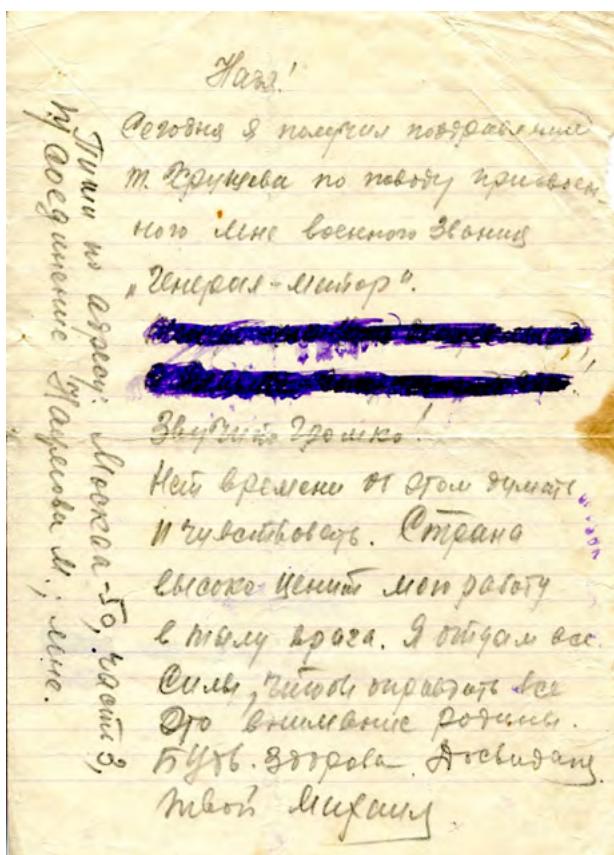 Надя!
Сегодня я получил поздравления
т. Хрущева по поводу присвоен-
ного мне военного звания
„Генерал-майор“.
Звучит громко!
Нет времени об этом думать
и чувствовать. Страна
высоко ценит мою работу
в тылу врага. Я отдам все
силы, чтобы оправдать все
это внимание родины.
Будь здорова. Досвидания
твой Михаил
Пиши по адресу: Москва-50, часть 3,
п/соединение Наумова М., мне.